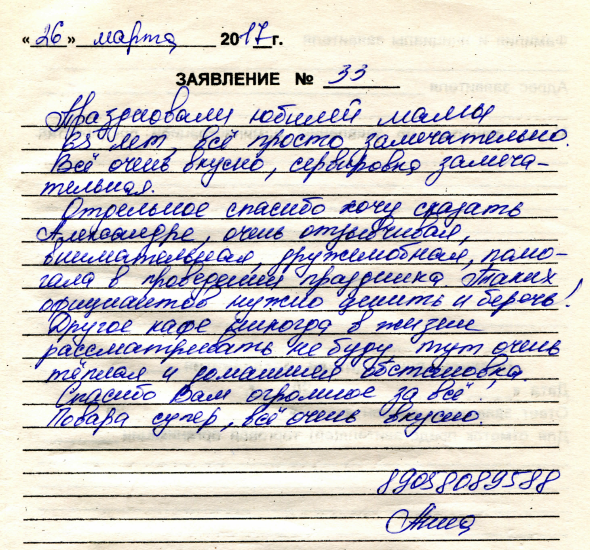 «26» марта 2017 г.
ЗАЯВЛЕНИЕ № 33
Праздновали юбилей мамы
85 лет, всё просто замечательно.
Всё очень вкусно, сервировка замеча-
тельная.
Отдельное спасибо хочу сказать
Александре, очень отзывчивая,
внимательная, дружелюбная, помо-
гала в проведении праздника. Таких
официантов нужно ценить и беречь!
Другое кафе никогда в жизни
рассматривать не буду, тут очень
тёплая и домашняя обстановка.
Спасибо Вам огромное за всё!
Повара супер, всё очень вкусно.
89058089588